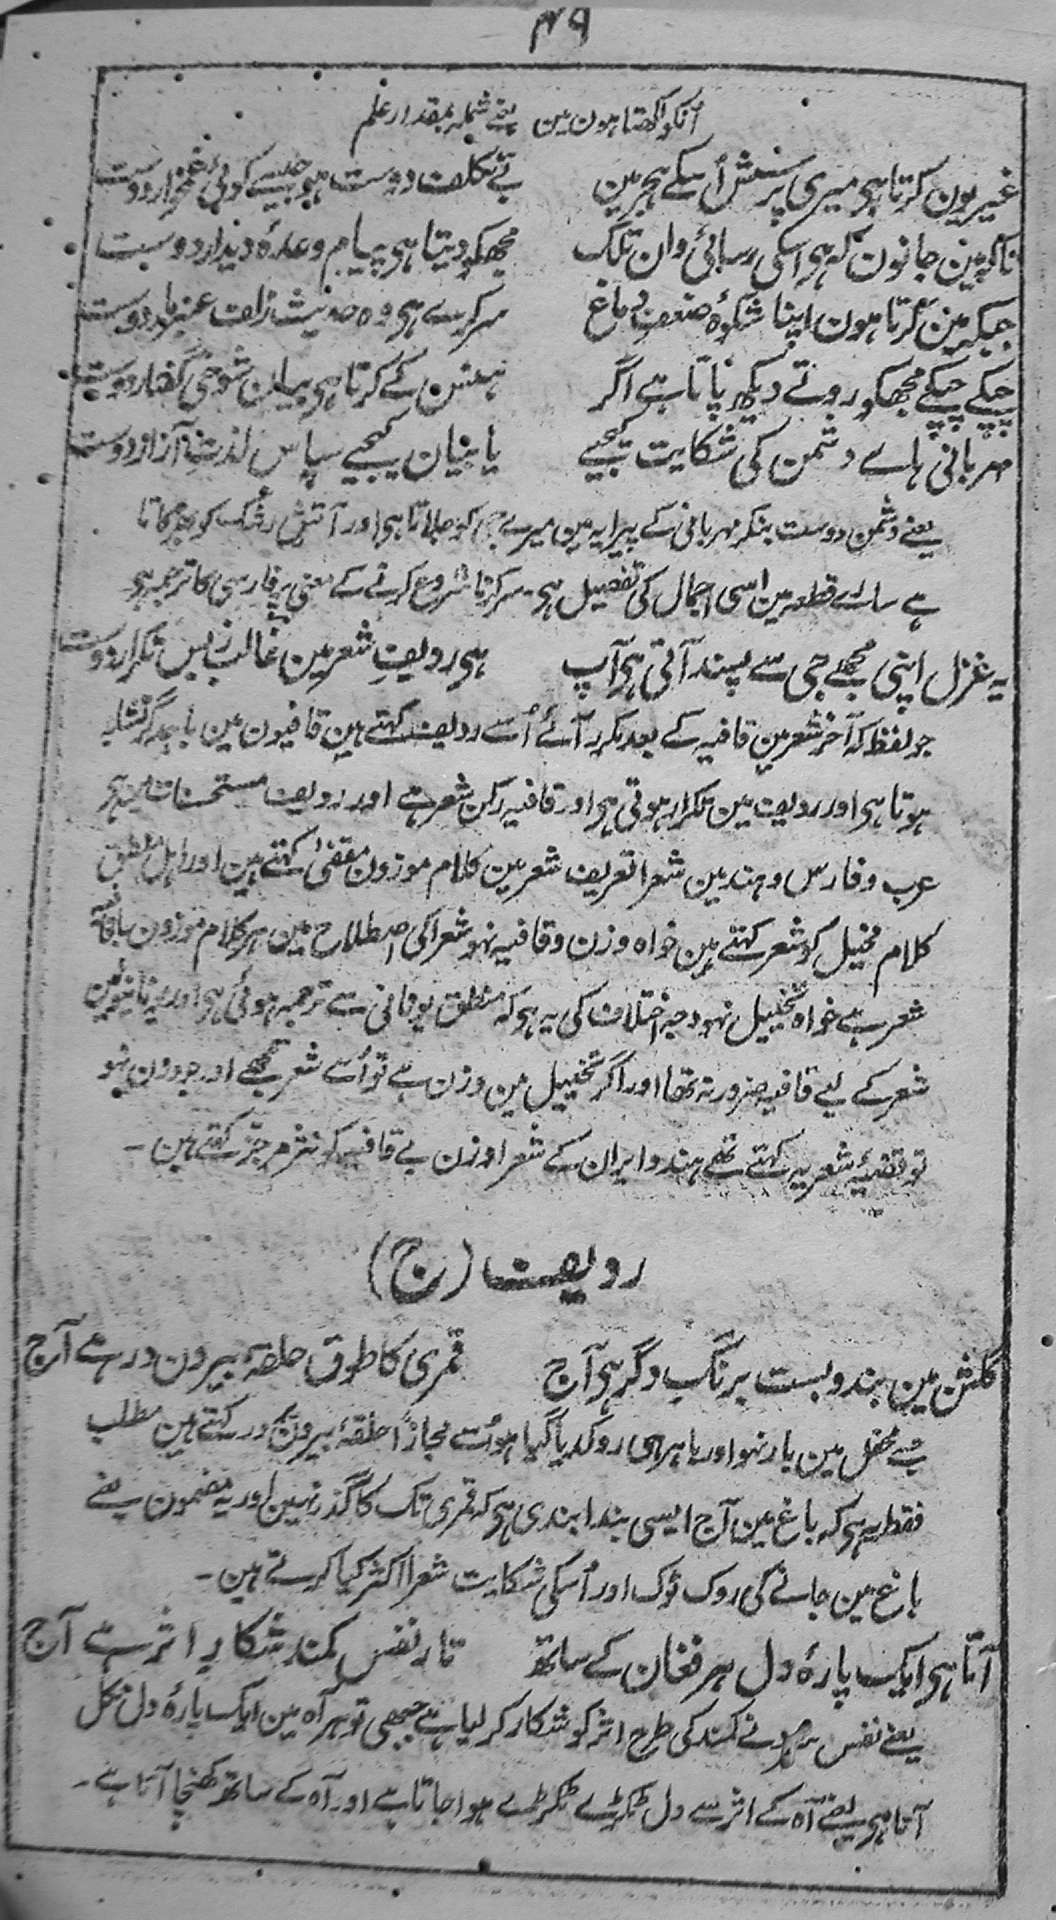 ۴۹
اُنکو لکھتا ہون مین یعنے شملہ بمقدار علم
غیر یون کرتا ہی میری پرسش اُسکے ہجر مین بے تکلف دوست ہو جیسے کوئی غمخوار دوست
تاکہ مین جانون کہ ہی اسکی رسائی وان تلک مجھکو دیتا ہی پیام وعدۂ دیدار دوست
جبکہ مین کرتا ہون اپنا شکوۂ ضعف دماغ سر کرے ہی وہ حدیث زلف عنبر بار دوست
چپکے چپکے مجھکو روتے دیکھ پاتا ہے اگر ہنسکے کرتا ہی بیان شوخی گفتار دوست
مہربانی ہاے دشمن کی شکایت کیجیے یا بیان کیجیے سپاس لذت آزار دوست
یعنے دشمن دوست بنکر مہربانی کے پیرایہ مین میرے جی کو جلاتا ہی اور آتش رشک کو بھڑکاتا
ہے سارے قطعہ مین اسی اجمال کی تفصیل ہی۔ سر کرنا شروع کرنے کے معنی پر فارسی کا ترجمہ ہی
یہ غزل اپنی مجھے جی سے پسند آتی ہی آپ ہی ردیف شعر مین غالب زبس تکرار دوست
جو لفظ کہ آخر شعر مین قافیہ کے بعد مکرر آئے اُسے ردیف کہتے ہین قافیون مین باہمدگر تشابہ
ہوتا ہی اور ردیف مین تکرار ہوتی ہی اور قافیہ رکن شعر ہے اور ردیف مستحسنات مین ہی
عرب و فارس و ہند مین شعرا تعریف شعر مین کلام موزون مقفیٰ کہتے ہین اور اہل منطق
کلام مخیل کو شعر کہتے ہین خواہ وزن و قافیہ نہو شعرا کی اصطلاح مین ہر کلام موزون باقافیہ
شعر ہے خواہ تخییل نہو وجہ اختلاف کی یہ ہی کہ منطق یونانی سے ترجمہ ہوئی ہی اور یونانیون مین
شعر کے لیے قافیہ ضرور نہ تھا اور اگر تخییل مین وزن ہے تو اُسے شعر سمجھے اور جو وزن نہو
تو قضیۂ شعریہ کہتے تھے ہند و ایران کے شعرا وزن بے قافیہ کو نثر مرجز کہتے ہین۔
ردیف (ج)
گلشن مین بندوبست برنگ دگر ہی آج قمری کا طوق حلقۂ بیرون در ہے آج
جسے محفل مین بار نہو اور باہر ہی روکدیا گیا ہو اُسے مجازاً حلقۂ بیرون در کہتے ہین مطلب
فقط یہ ہی کہ باغ مین آج ایسی بندا بندی ہی کہ قمری تک کا گذر نہین اور یہ مضمون یعنے
باغ مین جانے کی روک ٹوک اور اُسکی شکایت شعرا اکثر کیا کرتے ہین۔
آتا ہی ایک پارۂ دل ہر فغان کے ساتھ تار نفس کمند شکار اثر ہے آج
یعنے نفس نے کمند کی طرح اثر کو شکار کر لیا ہے جبھی تو ہر آہ مین ایک پارۂ دل نکل
آتا ہی یعنے آہ کے اثر سے دل ٹکڑے ٹکڑے ہوا جاتا ہے اور آہ کے ساتھ کھنچا آتا ہے۔